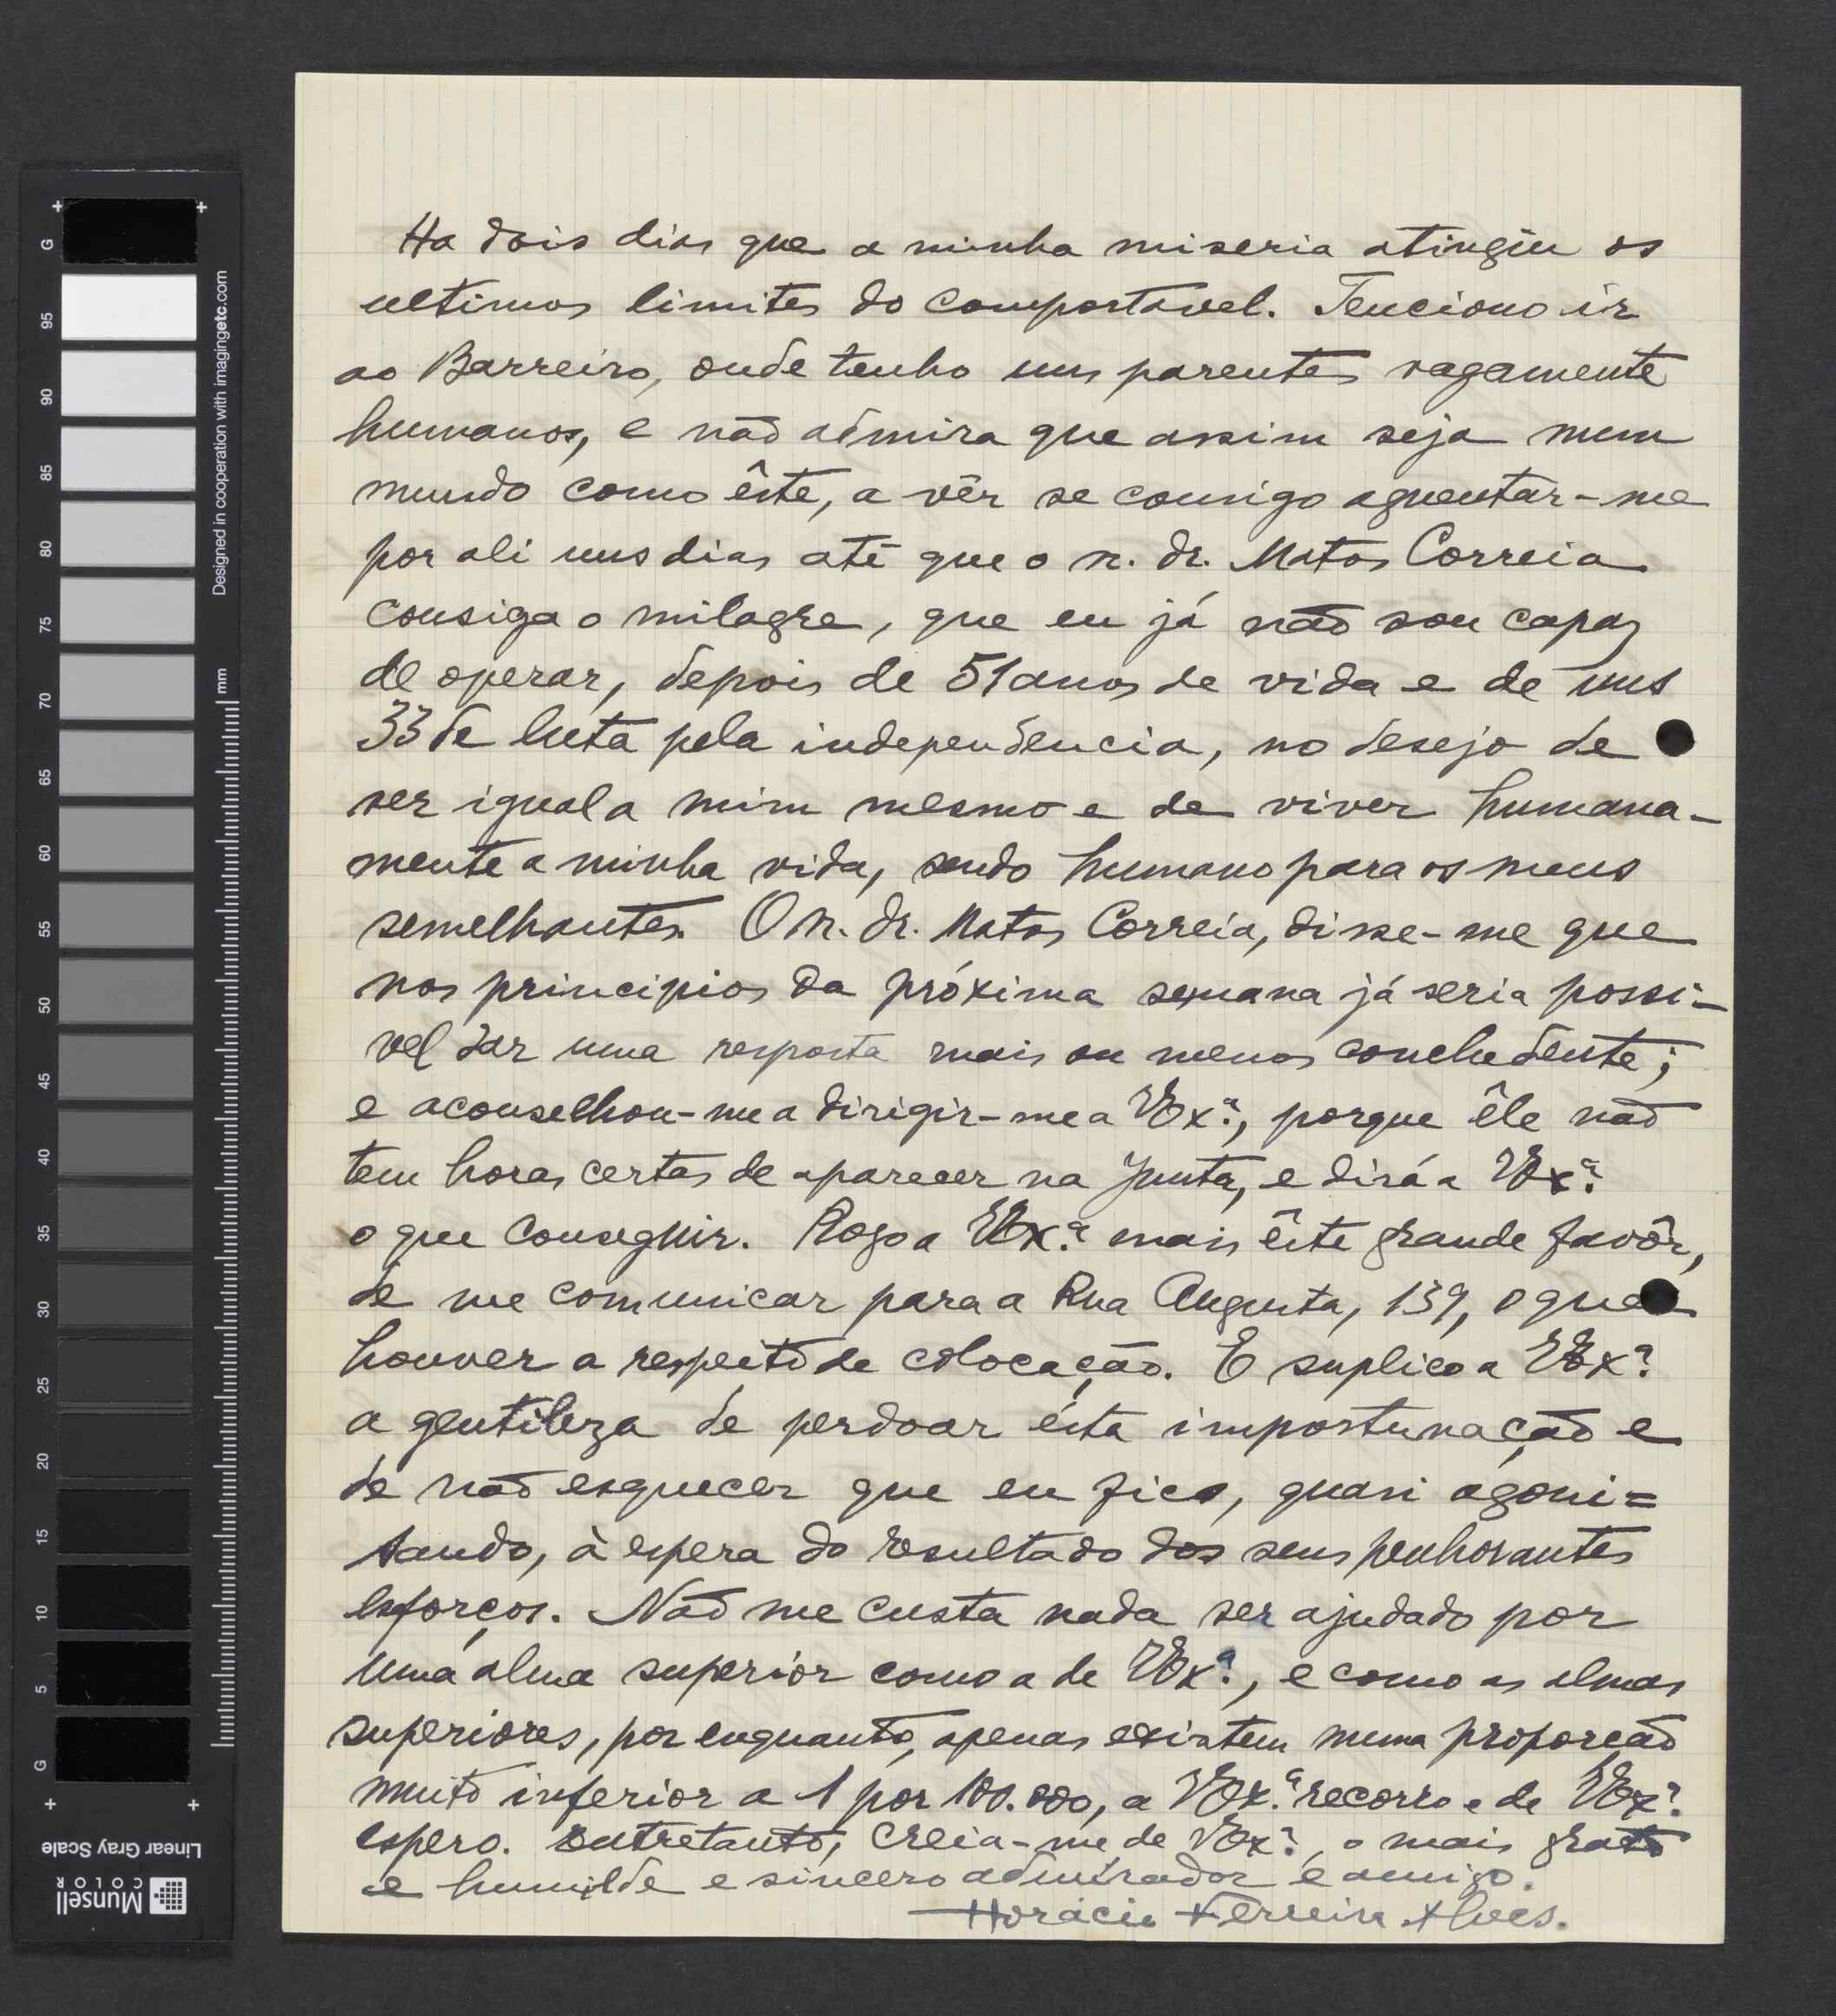 Ha dois dias que a minha miseria atingiu os
ultimos limites do comportavel. Tenciono ir
ao Barreiro, onde tenho uns parentes vagamente
humanos, e não admira que assim seja num
mundo como êste, a vêr se consigo aguentar-me
por ali uns dias até que o sr. dr. Matos Correia
consiga o milagre, que eu já não sou capaz
de operar, depois de 51 anos de vida e de uns
33 de luta pela independencia, no desejo de
ser igual a mim mesmo e de viver humana-
mente a minha vida, sendo humano para os meus
semelhantes. O sr. dr. Matos Correia, disse-me que
nos principios da próxima semana já seria possi-
vel dar uma resposta mais ou menos concludente;
e aconselhou-me a dirigir-me a V. Ex.ª, porque êle não
tem horas certas de aparecer na Junta, e dirá a V. Ex.ª
o que conseguir. Rogo a V. Ex.ª mais êste grande favôr,
de me comunicar para a Rua Augusta, 139, o que
houver a respeito de colocação. E suplico a V. Ex.ª
a gentileza de perdoar ésta importunação e
de não esquecer que eu fico, quasi agoni=
sando, à espera do resultado dos seus penhorantes
esforços. Não me custa nada ser ajudado por
uma alma superior como a de V. Ex.ª, e como as almas
superiores, por enquanto, apenas existem numa proporção
muito inferior a 1 por 100.000, a V. Ex.ª recorro e de V. Ex.ª
espero. Entretanto, creia-me de V. Ex.ª, o mais grato
e humilde e sincero admirador e amigo.
Horácio Ferreira Alves.
Designed in cooperation with imagingetc.com
mm
G
95
90
85
80
75
70
65
60
55
50
45
40
35
30
25
20
15
10
5
G
Linear Gray Scale
Munsell
COLOR